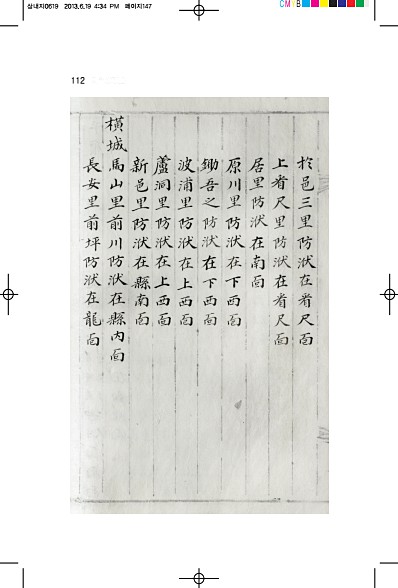 상내지0619 2013.6.19 4:34 PM 페이지147
CM Y B
112
扵邑三里防洑在者尺面
上者尺里防洑在者尺面
居里防洑在南面
原川里防洑在下西面
鋤吾之防洑在下西面
波浦里防洑在上西面
蘆洞里防洑在上西面
新邑里防洑在縣南面
橫城馬山里前川防洑在縣內面
長安里前坪防洑在龍面